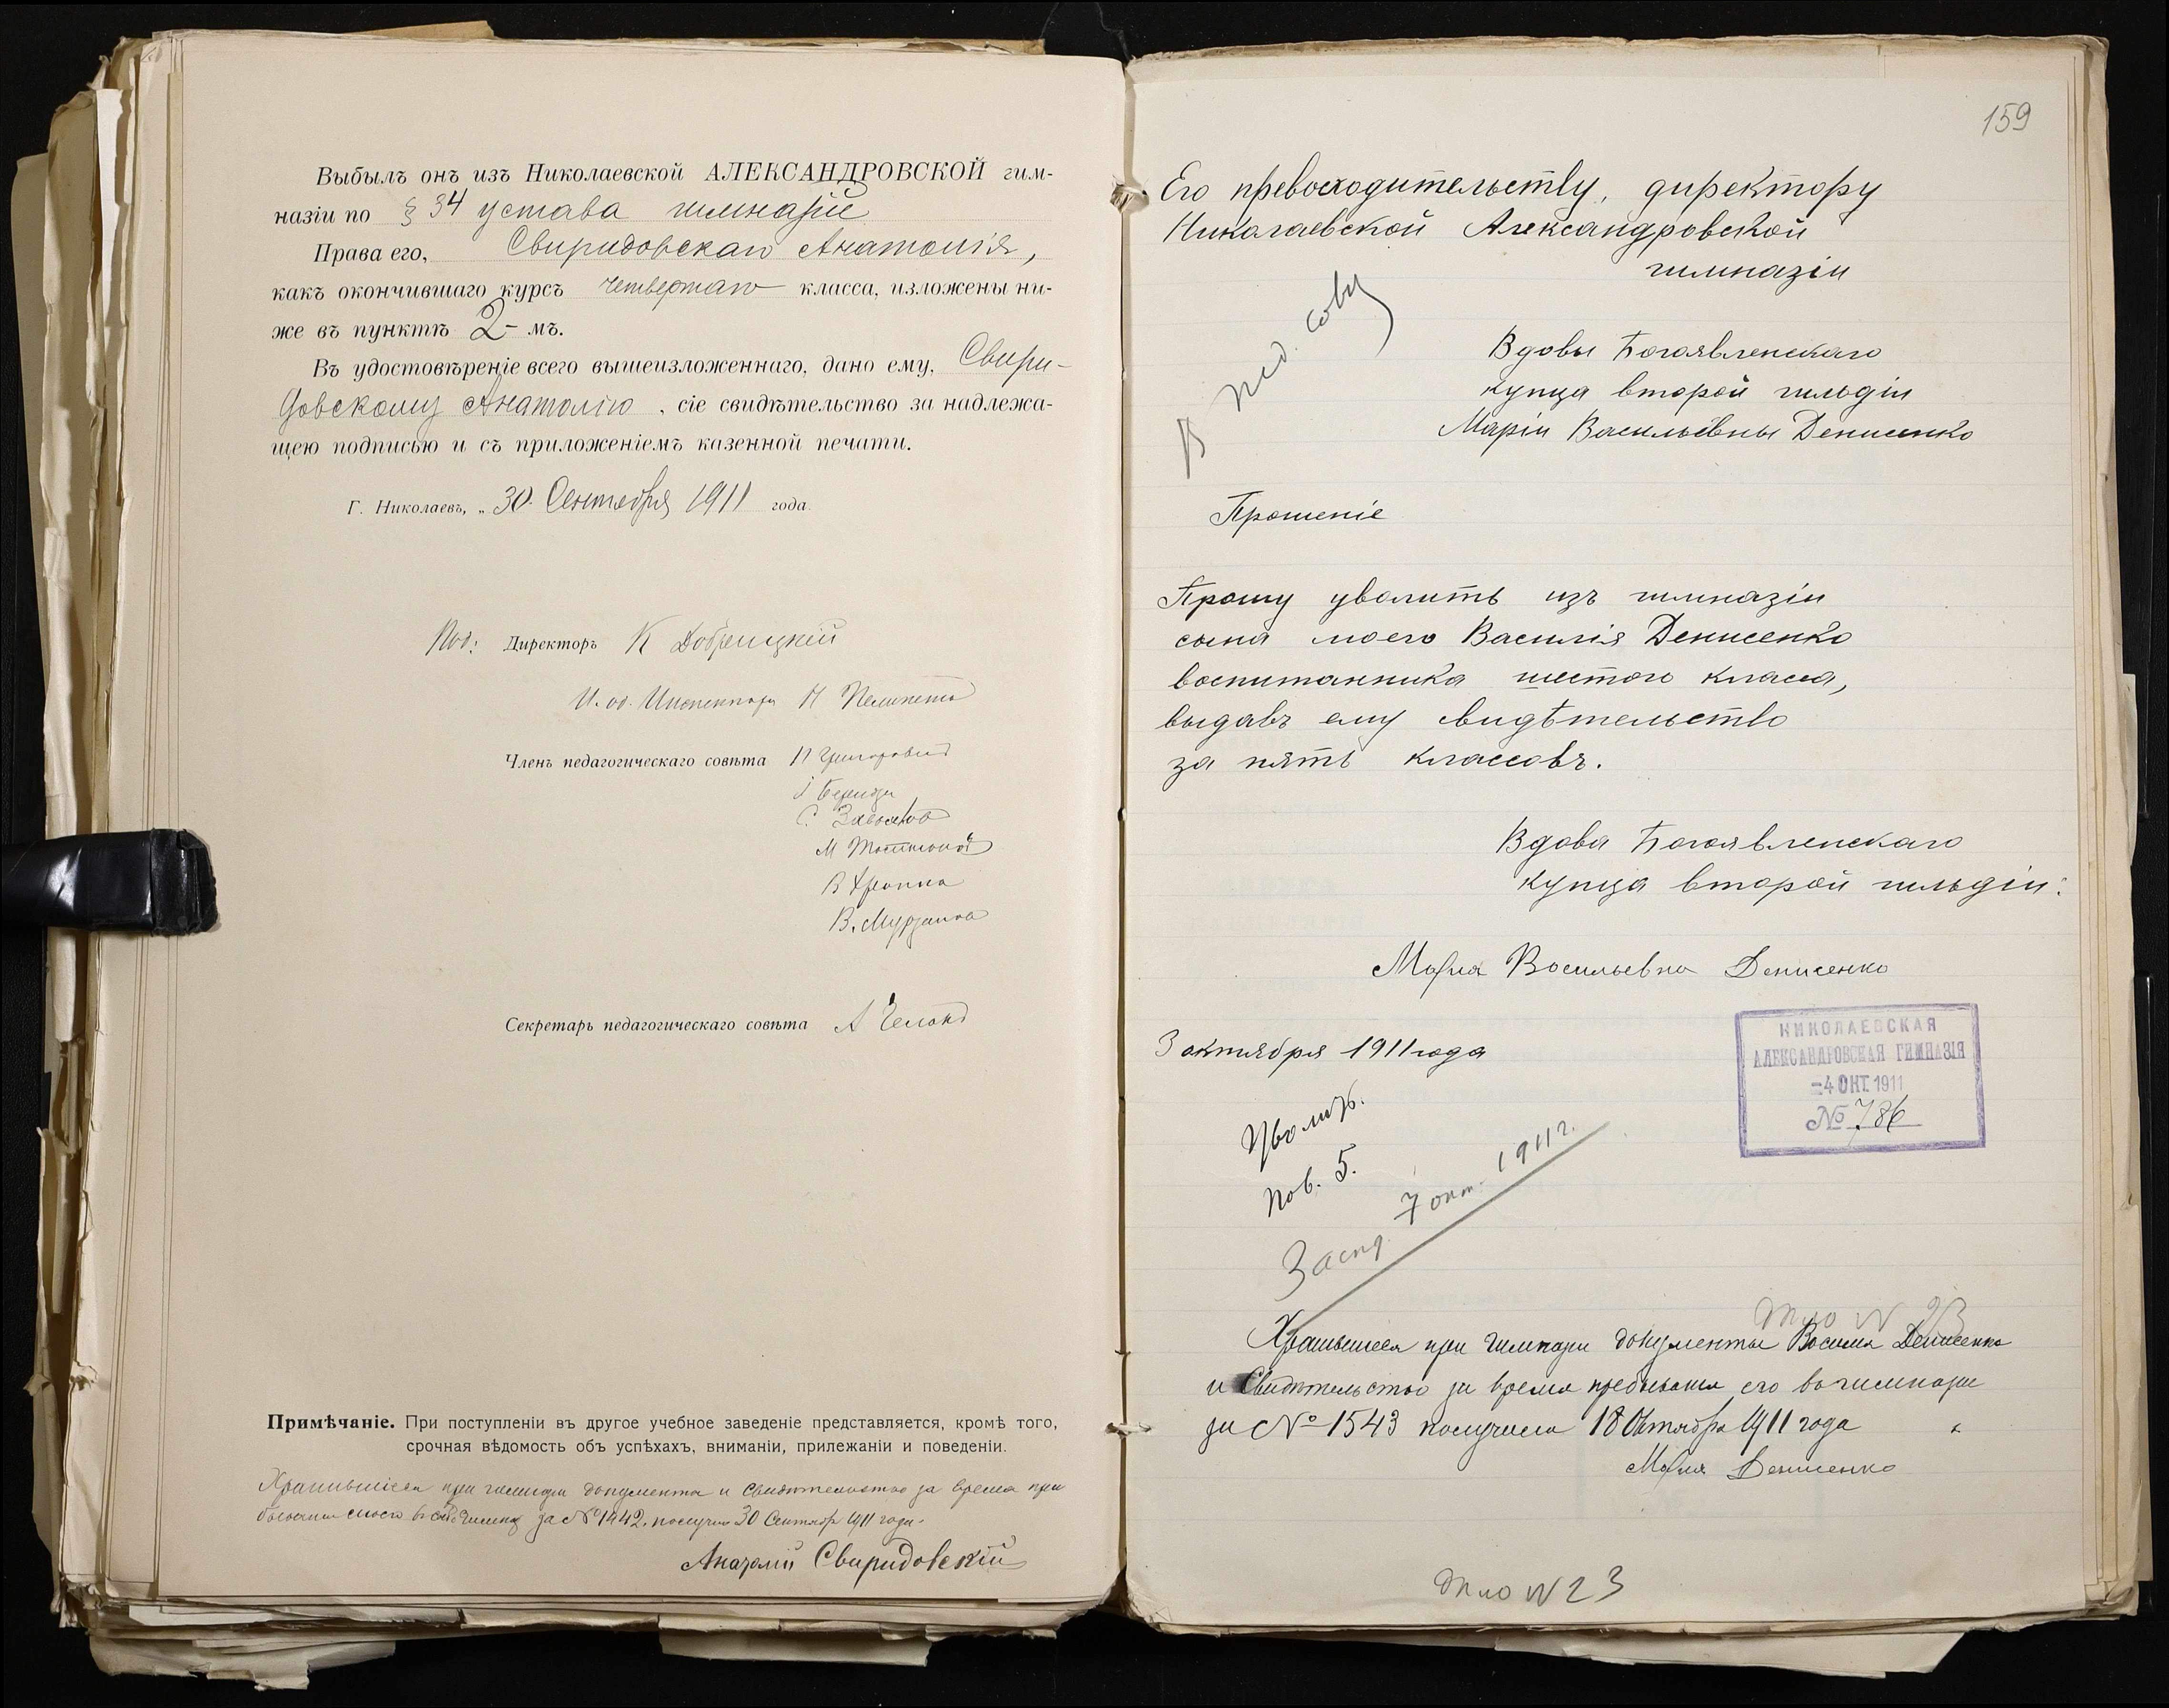 Выбылъ онъ изъ Николаевской АЛЕКСАНДРОВСКОЙ гим-
назіи по § 34 устава гимназій
Права его, Свиридовскаго Анатолія,
какъ окончившаго курсъ четвертаго класса, изложены ни-
же въ пунктѣ 2-мъ.
Въ удостовѣреніе всего вышеизложеннаго, дано ему, Свири-
довскому Анатолію, сіе свидѣтельство за надлежа-
щею подписью и съ приложеніемъ казенной печати.
Г. Николаевъ, „ 30 Сентября 1911 года.
Под: Директоръ К
И. об. Инспектора Н
Членъ педагогическаго совѣта Н Григоровичъ
В. Мурзанов
Секретарь педагогическаго совѣта А
Примѣчаніе. При поступленіи въ другое учебное заведеніе представляется, кромѣ того,
срочная вѣдомость объ успѣхахъ, вниманіи, прилежаніи и поведеніи.
Хранившіеся при гимназіи документы и свидѣтельство за время пре
быванія своего въ гимназ за № 1442, получил 30 Сентябр 1911 года.
Анатолій Свиридовскій
159
Его превосходительству, директору
Николаевской Александровской
гимназіи
В пед. сов
Вдовы Богоявленскаго
купца второй гильдіи
Маріи Васильевны Денисенко
Прошеніе
Прошу уволить изъ гимназіи
сына моего Василія Денисенко
воспитанника шестого класса,
выдавъ ему свидѣтельство
за пять классовъ.
Вдова Богоявленскаго
купца второй гильдіи:
Мария Васильевна Денисенко
3 октября 1911 года
НИКОЛАЕВСКАЯ
АЛЕКСАНДРОВСКАЯ ГИМНАЗІЯ
-4 ОКТ. 1911
№ 786
Уволить.
Пов. 5.
Засѣд. 7 окт. 1911 г.
Дѣло N 23
Хранившиеся при гимназии документы Василия Денисенко
и Свидѣтельство за время пребывания его в гимназии
за № 1543 получила 18 Октября 1911 года
Мария Денисенко
Дѣло N 23